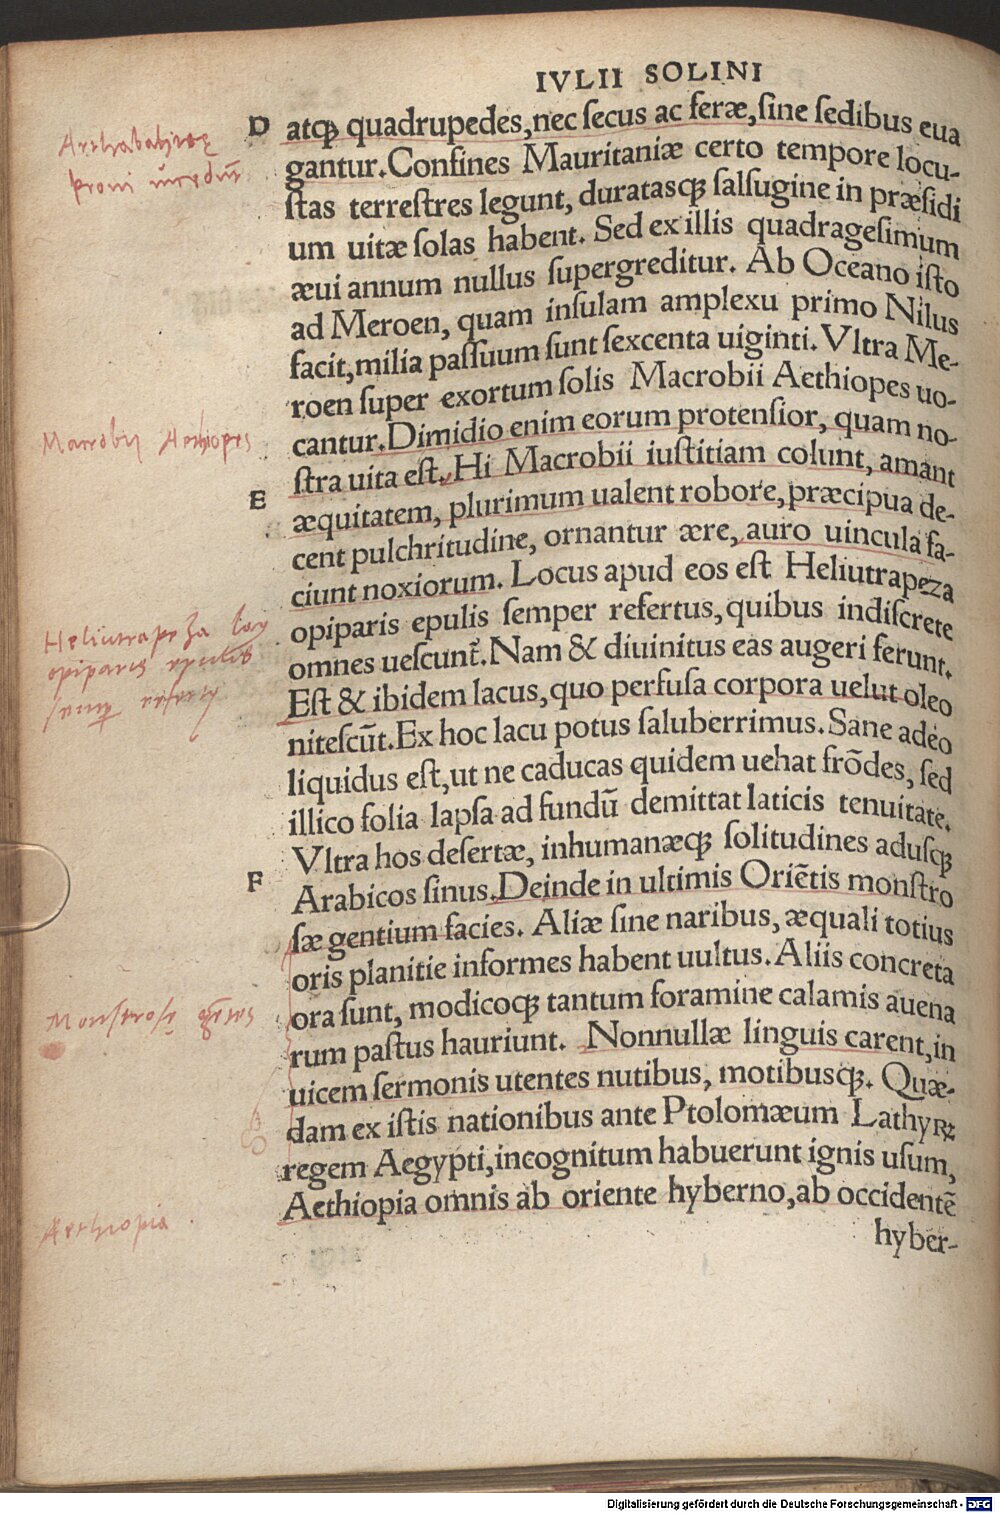 IVLII SOLINI
D
atqꝫ quadrupedes, nec ſecus ac feræ, ſine ſedibus eua
gantur. Confines Mauritaniæ certo tempore locu-
ſtas terreſtres legunt, duratasqꝫ ſalſugine in præſidi
um uitæ ſolas habent. Sed ex illis quadrageſimum
æui annum nullus ſupergreditur. Ab Oceano iſto
ad Meroen, quam inſulam amplexu primo Nilus
facit, milia paſſuum ſunt ſexcenta uiginti. Vltra Me-
roen ſuper exortum ſolis Macrobii Aethiopes uo-
cantur. Dimidio enim eorum protenſior, quam no-
ſtra uita eſt. Hi Macrobii iuſtitiam colunt, amant
E
æquitatem, plurimum ualent robore, præcipua de-
cent pulchritudine, ornantur ære, auro uincula fa-
ciunt noxiorum. Locus apud eos eſt Heliutrapeza
opiparis epulis ſemper refertus, quibus indiſcrete
omnes ueſcunt᷑. Nam & diuinitus eas augeri ferunt.
Eſt & ibidem lacus, quo perfuſa corpora uelut oleo
niteſcūt. Ex hoc lacu potus ſaluberrimus. Sane adeo
liquidus eſt, ut ne caducas quidem uehat frōdes, ſed
illico folia lapſa ad fundū demittat laticis tenuitate.
Vltra hos deſertæ, inhumanæqꝫ ſolitudines aduſqꝫ
F
Arabicos ſinus. Deinde in ultimis Oriētis monſtro
ſæ gentium facies. Aliæ ſine naribus, æquali totius
oris planitie informes habent uultus. Aliis concreta
ora ſunt, modicoqꝫ tantum foramine calamis auena
rum paſtus hauriunt. Nonnullæ linguis carent, in
uicem ſermonis utentes nutibus, motibusqꝫ. Quæ-
dam ex iſtis nationibus ante Ptolomæum Lathyꝶ
regem Aegypti, incognitum habuerunt ignis uſum,
Aethiopia omnis ab oriente hyberno, ab occidentē
hyber-
proni
Macrobii Aethiopes
Heliutrapeza
opiparis epulis
Monstrosę gētes
Aethiopia
Digitalisierung gefördert durch die Deutsche Forschungsgemeinschaft - DFG